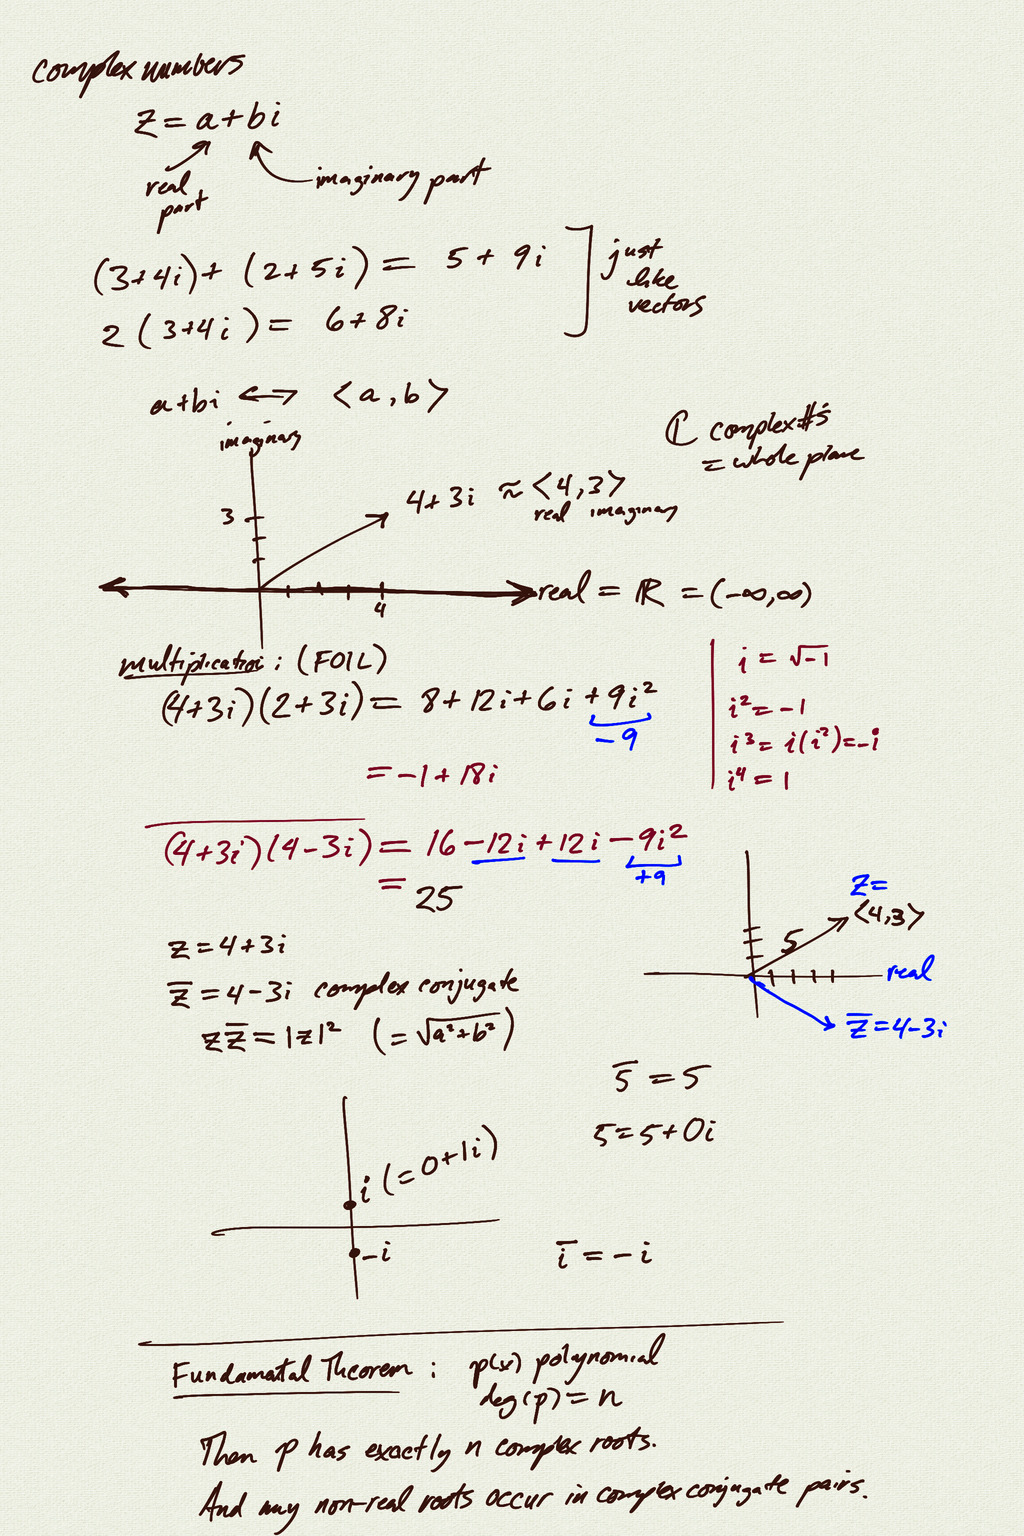 complex numbers
z = a + bi
real part
imaginary part
(3+4i) + (2+5i) = 5 + 9i
2(3+4i) = 6+8i
just like vectors
a+bi ⟺ <a, b>
ℂ complex #'s
= whole plane
imaginary
3
4+3i ≈ <4,3>
real imaginary
4
real = ℝ = (-∞,∞)
multiplication: (FOIL)
(4+3i)(2+3i) = 8+12i+6i+9i²
-9
= -1 + 18i
i = √-1
i² = -1
i³ = i(i²) = -i
i⁴ = 1
(4+3i)(4-3i) = 16-12i+12i-9i²
+9
= 25
z = 4+3i
z̅ = 4-3i complex conjugate
zz̅ = |z|² (= √a²+b²)
z =
<4,3>
5
real
z̅ = 4-3i
5̅ = 5
5 = 5+0i
i (= 0+1i)
-i
i̅ = -i
Fundamatal Theorem: p(x) polynomial
deg(p) = n
Then p has exactly n complex roots.
And any non-real roots occur in complex conjugate pairs.